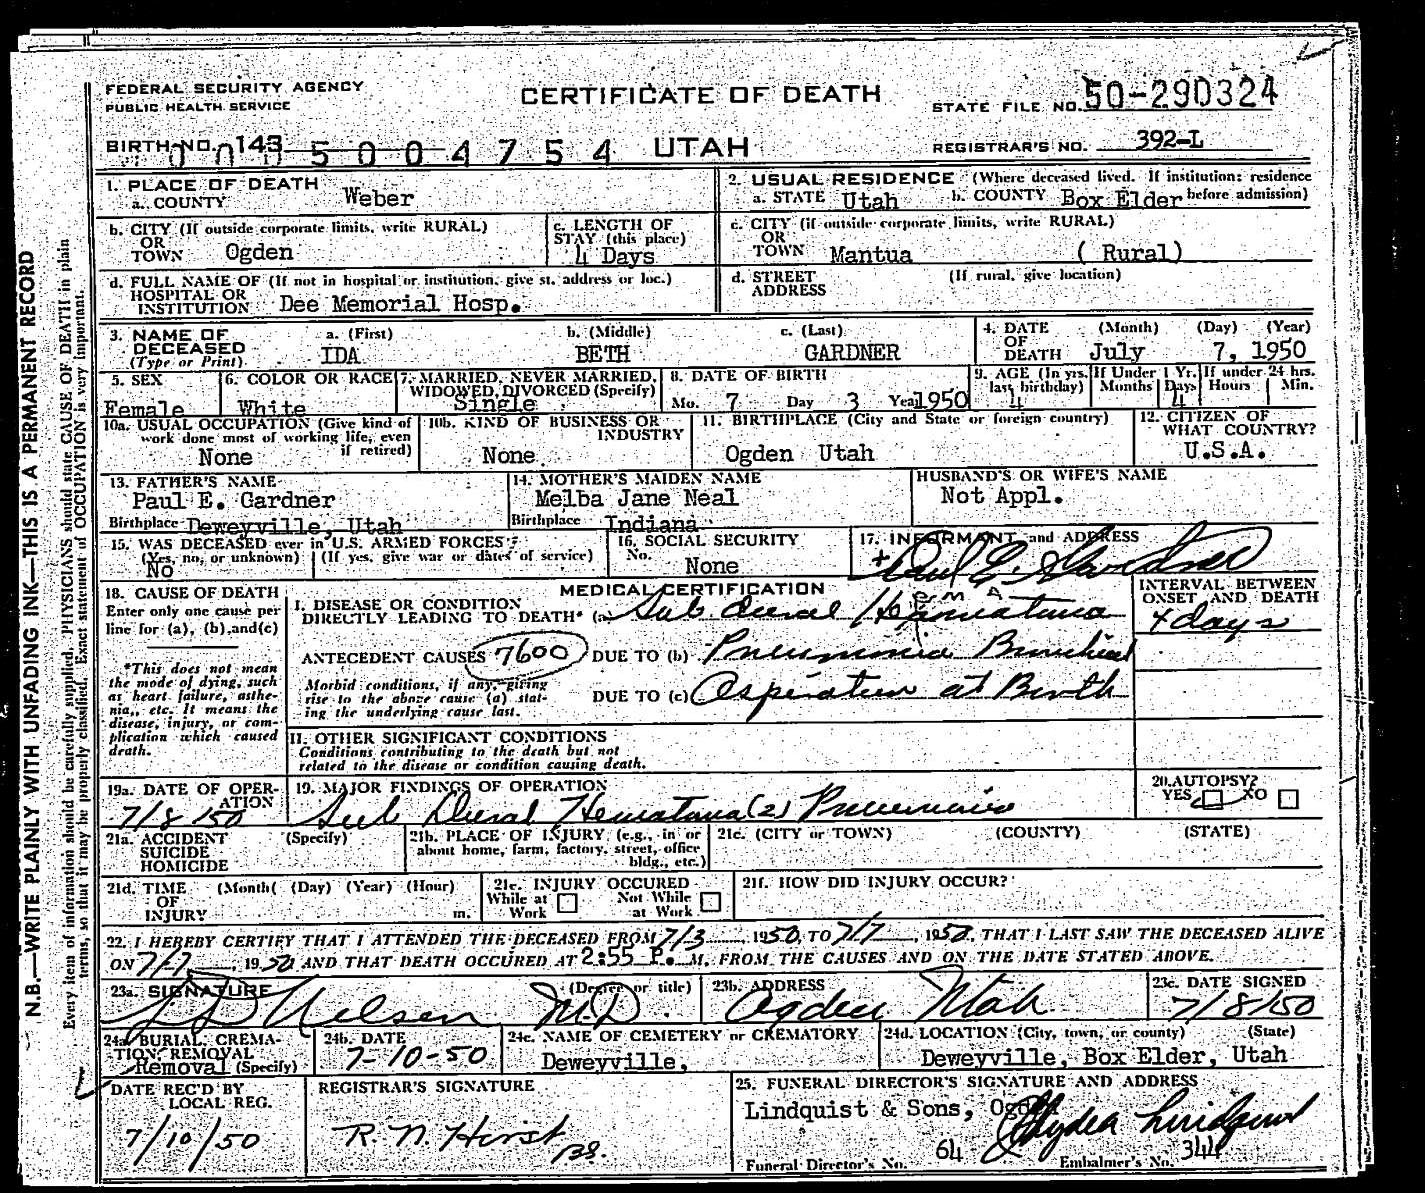 FEDERAL SECURITY AGENCY
PUBLIC HEALTH SERVICE
CERTIFICATE OF DEATH
STATE FILE NO. 50-290324
BIRTH NO. 143
5 0 0 4 7 5 4
UTAH
REGISTRAR'S NO. 392-L
1. PLACE OF DEATH
a. COUNTY Weber
2. USUAL RESIDENCE (Where deceased lived. If institution: residence before admission)
a. STATE Utah b. COUNTY Box Elder
b. CITY (If outside corporate limits, write RURAL)
OR
TOWN Ogden
c. LENGTH OF
STAY (this place)
4 Days
c. CITY (if outside corporate limits, write RURAL)
OR
TOWN Mantua ( Rural)
d. FULL NAME OF (If not in hospital or institution, give st. address or loc.)
HOSPITAL OR
INSTITUTION Dee Memorial Hosp.
d. STREET (If rural, give location)
ADDRESS
3. NAME OF
DECEASED
(Type or Print)
a. (First) b. (Middle) c. (Last)
IDA BETH GARDNER
4. DATE (Month) (Day) (Year)
OF
DEATH July 7, 1950
5. SEX
Female
6. COLOR OR RACE
White
7. MARRIED, NEVER MARRIED,
WIDOWED, DIVORCED (Specify)
Single
8. DATE OF BIRTH
Mo. 7 Day 3 Year 1950
9. AGE (In yrs. last birthday) 4
If Under 1 Yr. Months Days 4
If under 24 hrs. Hours Min.
10a. USUAL OCCUPATION (Give kind of
work done most of working life, even
if retired)
None
10b. KIND OF BUSINESS OR
INDUSTRY
None
11. BIRTHPLACE (City and State or foreign country)
Ogden Utah
12. CITIZEN OF
WHAT COUNTRY?
U.S.A.
13. FATHER'S NAME
Paul E. Gardner
Birthplace Deweyville, Utah
14. MOTHER'S MAIDEN NAME
Melba Jane Neal
Birthplace Indiana
HUSBAND'S OR WIFE'S NAME
Not Appl.
15. WAS DECEASED ever in U.S. ARMED FORCES?
(Yes, no, or unknown) (If yes, give war or dates of service)
No
16. SOCIAL SECURITY
No. None
17. INFORMANT and ADDRESS
+ Paul E. Gardner
18. CAUSE OF DEATH
Enter only one cause per
line for (a), (b), and (c)
*This does not mean
the mode of dying, such
as heart failure, asthe-
nia, etc. It means the
disease, injury, or com-
plication which caused
death.
MEDICAL CERTIFICATION
I. DISEASE OR CONDITION
DIRECTLY LEADING TO DEATH* (a) Sub dural Hematoma
ANTECEDENT CAUSES 7600 DUE TO (b) Pneumonia Bronchial
Morbid conditions, if any, giving
rise to the above cause (a) stat-
ing the underlying cause last.
DUE TO (c) Aspiration at Birth
INTERVAL BETWEEN
ONSET AND DEATH
4 days
II. OTHER SIGNIFICANT CONDITIONS
Conditions contributing to the death but not
related to the disease or condition causing death.
19a. DATE OF OPER-
ATION
7/8/50
19. MAJOR FINDINGS OF OPERATION
Sub Dural Hematoma (2) Pneumonia
20. AUTOPSY?
YES NO
21a. ACCIDENT (Specify)
SUICIDE
HOMICIDE
21b. PLACE OF INJURY (e.g., in or
about home, farm, factory, street, office
bldg., etc.)
21c. (CITY or TOWN) (COUNTY) (STATE)
21d. TIME (Month( (Day) (Year) (Hour)
OF
INJURY m.
21e. INJURY OCCURED
While at Work Not While at Work
21f. HOW DID INJURY OCCUR?
22. I HEREBY CERTIFY THAT I ATTENDED THE DECEASED FROM 7/3, 1950, TO 7/7, 1950, THAT I LAST SAW THE DECEASED ALIVE
ON 7/7, 1950 AND THAT DEATH OCCURED AT 2:55 P. M. FROM THE CAUSES AND ON THE DATE STATED ABOVE.
23a. SIGNATURE (Degree or title)
Nelsen MD
23b. ADDRESS
Ogden Utah
23c. DATE SIGNED
7/8/50
24a. BURIAL, CREMA-
TION, REMOVAL
Removal (Specify)
24b. DATE
7-10-50
24c. NAME OF CEMETERY or CREMATORY
Deweyville,
24d. LOCATION (City, town, or county) (State)
Deweyville, Box Elder, Utah
DATE REC'D BY
LOCAL REG.
7/10/50
REGISTRAR'S SIGNATURE
R. N. Hirst
25. FUNERAL DIRECTOR'S SIGNATURE AND ADDRESS
Lindquist & Sons, Ogden
Lindquist
Funeral Director's No. 64 Embalmer's No. 344
N.B.—WRITE PLAINLY WITH UNFADING INK—THIS IS A PERMANENT RECORD
Every item of information should be carefully supplied. PHYSICIANS should state CAUSE OF DEATH in plain
terms, so that it may be properly classified. Exact statement of OCCUPATION is very important.